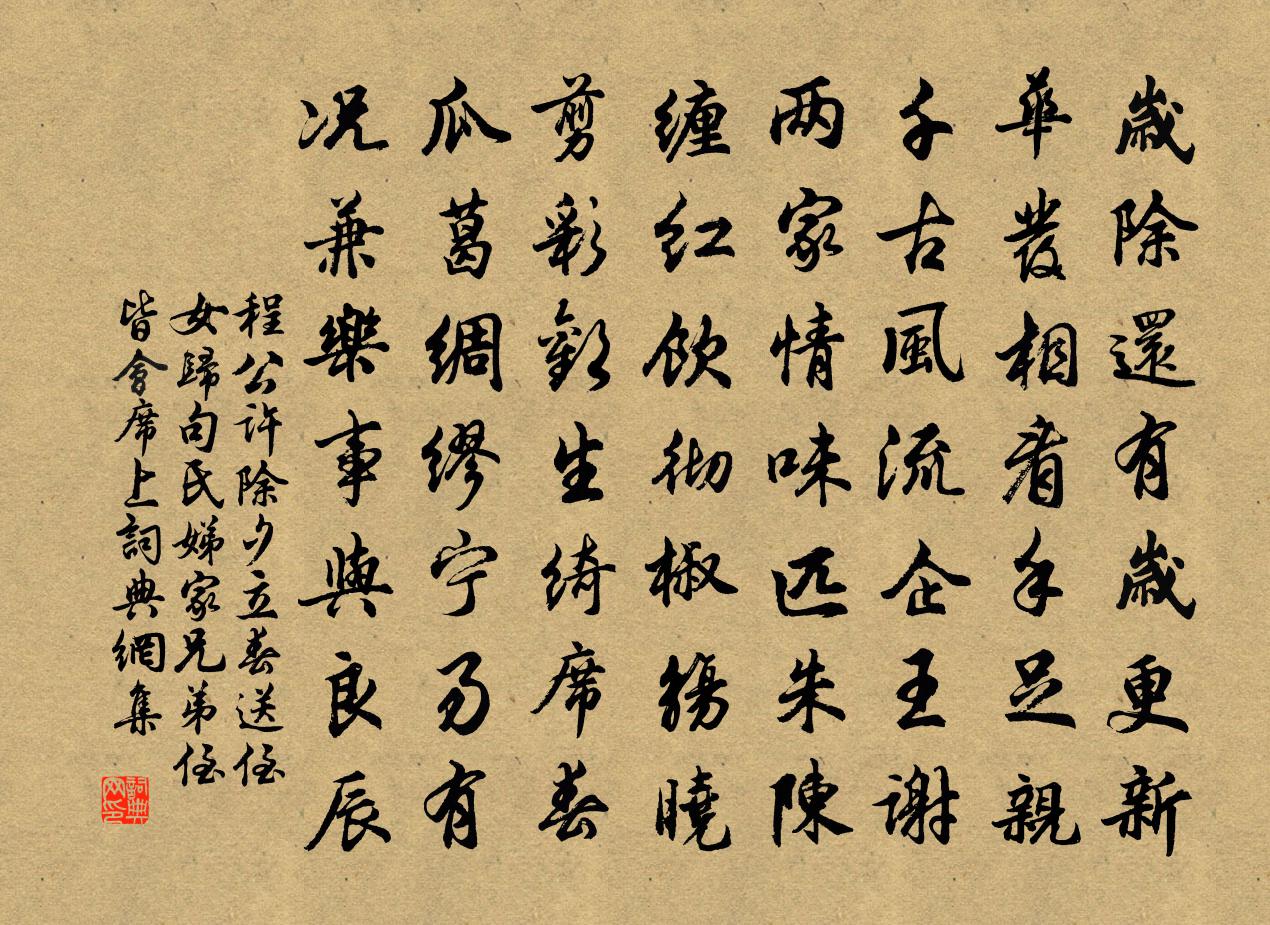 歲除還有歲更新
華發相看手足親
千古風流企王謝
两家情味匹朱陳
缠红飲彻椒觴曉
剪彩歡生綺席春
瓜葛綢繆宁易有
况兼樂事與良辰
程公許除夕立春送侄
女歸句氏娣家兄弟侄
皆會席上詞典網集
詞典网印